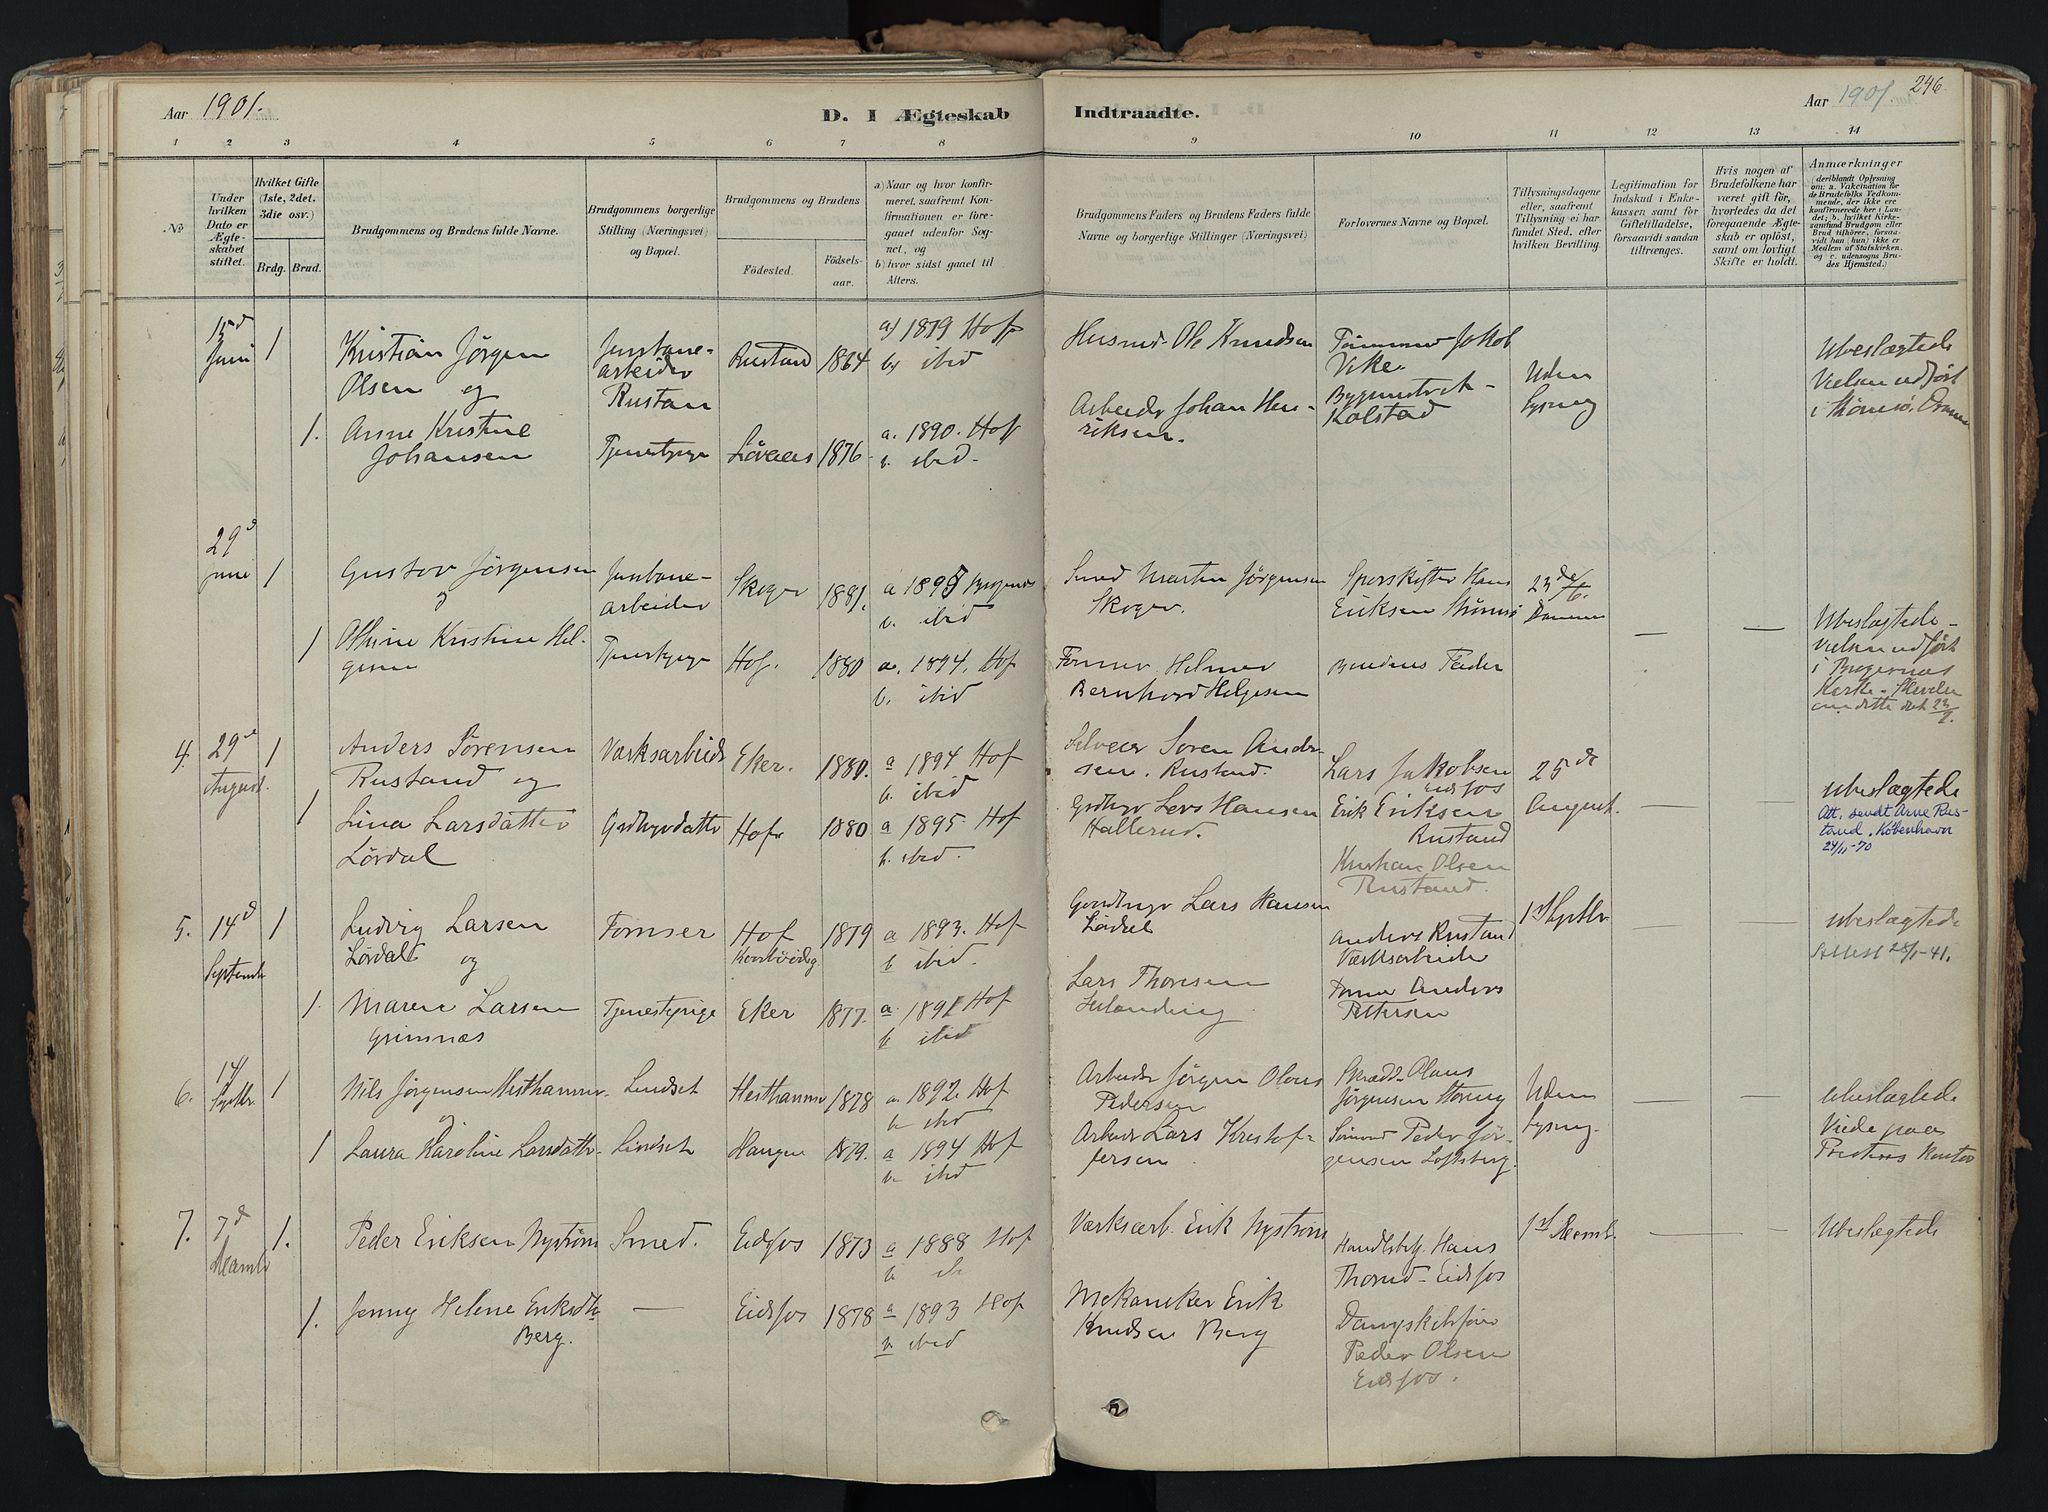 Aar 1901.
D. I Ægteskab
Indtraadte.
Aar 1901.
246
1 2 3 4 5 6 7 8 9 10 11 12 13 14
No
Under hvilken Dato er Ægteskabet stiftet.
Hvilket Gifte (1ste, 2det, 3die osv.)
Brdg. Brud.
Brudgommens og Brudens fulde Navne.
Brudgommens borgerlige Stilling (Næringsvei) og Bopæl.
Brudgommens og Brudens
Födested.
Födsels-aar.
a) Naar og hvor konfirmeret, saafremt Konfirmationen er foregaaet udenfor Sognet, og
b) hvor sidst gaaet til Alters.
Brudgommens Faders og Brudens Faders fulde Navne og borgerlige Stillinger (Næringsvei)
Forlovernes Navne og Bopæl.
Tillysningsdagene eller, saafremt Tillysning ei har fundet Sted, efter hvilken Bevilling.
Legitimation for Indskud i Enkekassen samt for Giftetilladelse, forsaavidt saadan tiltrænges.
Hvis nogen af Brudefolkene har været gift för, hvorledes da det foregaaende Ægteskab er oplöst, samt om lovligt Skifte er holdt.
Anmærkninger
(deriblandt Oplysning om: a. Vakcination for de Brudefolks Vedkommende, der ikke ere konfirmerede her i Landet; b. hvilket Kirkesamfund Brudgom eller Brud tilhörer, forsaavidt han (hun) ikke er Medlem af Statskirken, og c. udensogns Brudes Hjemsted.)
15d Juni 1
Kristian Jörgen
Olsen og
Jernbane-
arbeider
Rustan
Rustand 1864
a) 1879 Hof
b) ibid
Husmd. Ole Knudsen
Tømmermd Jakob
Vike
Uden
lysning
Ubeslægtede
Vielsen udført
i Strømsø, Dramm
1. Anne Kristine
Johansen
Tjenestpige
1876
a. 1890. Hof
b. ibid.
Arbeider Johan Hen-
riksen.
Kolstad
29d Juni 1
Gustav Jørgensen
og
Jernbane-
arbeider
Skoger 1881.
b. ibid
Smed Martin Jørgensen
Skoger.
Sporskifter Hans
Eriksen Strømsø
23de/6.
Drammen
1 Othine Kristine Hel-
gesen
Tjenestpige
Hof. 1880
a. 1894. Hof
b. ibid
Former Helmer
Bernhard Helgesen
Brudens Fader
Ubeslægtede -
Vielsen udført
i Bragernes
Kirke.
4. 29d August. 1
Anders Sørensen
Rustand og
Værksarbeid
Eker. 1880.
a 1894 Hof
b. ibid
Selveier Søren Ander-
sen, Rustand.
Lars Jakobsen
Eidsfos
25de
August.
1 Lina Larsdatter
Lördal
Gdbrgrdatter
Hof 1880
a 1895. Hof
b. ibid.
Gdbrgr Lars Hansen
Hallerud.
Erik Eriksen
Rustand
Kristian Olsen
Rustand.
Ubeslægtede
Att. sendt Arne Rus-
tand, København
24/11-70
5. 14d Septemb 1
Ludvig Larsen
Lørdal og
Former
Hof 1879
a 1893. Hof
b ibid.
Gaardbrgr Lars Hansen
Lördal
Anders Rustand
Værksarbeider
1st Septbr
Ubeslægtede
Attest 28/1-41.
1. Maren Larsen
Grimnæs
Tjenestpige
Eker 1877.
a 1892 Hof
b ibid
Lars Thoresen
Former Anders
Pettersen
6. 14 Septbr. 1
Nils Jørgensen Hesthammer
og
Lindset
Hesthammer 1878
a. 1892. Hof
b. ibid
Arbeider Jørgen Olaus
Pedersen
Skrædd. Olaus
Jørgensen
Uden
Lysning.
1 Laura Karoline Larsdatter
Lindset
Haugen 1879.
a 1894 Hof
b. ibid
Arbeider Lars Kristof-
fersen
Peder Jör-
gensen Loftsberg.
Ubeslægtede
Viede paa
Prestens Kontor
7. 7d Decemb 1.
Peder Eriksen Nystrøm
Smed.
Eidsfos 1873
a 1888 Hof
b ib
Værksarb. Erik Nystrøm
Handlsbetj. Hans
Thorud - Eidsfos
1st Decemb.
Ubeslægtede
1. Jenny Helene Eriksdtr
Berg.
Eidsfos 1878
a 1893 Hof
b. ibid
Mekaniker Erik
Knudsen Berg
Dampskibsfører
Peder Olsen
Eidsfos.